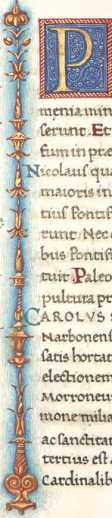 P
menia min
serunt. Et
sum in præ
Nicolaus qua
maioris in
tius Pontif
runt. Nec
bus Pontifi
tuit. Paleo
pultura pr
CAROLVS s
Narbonens
satis hortat
electionem
Morroneus
mone milia
ac sanctitat
tertius est
Cardinalib